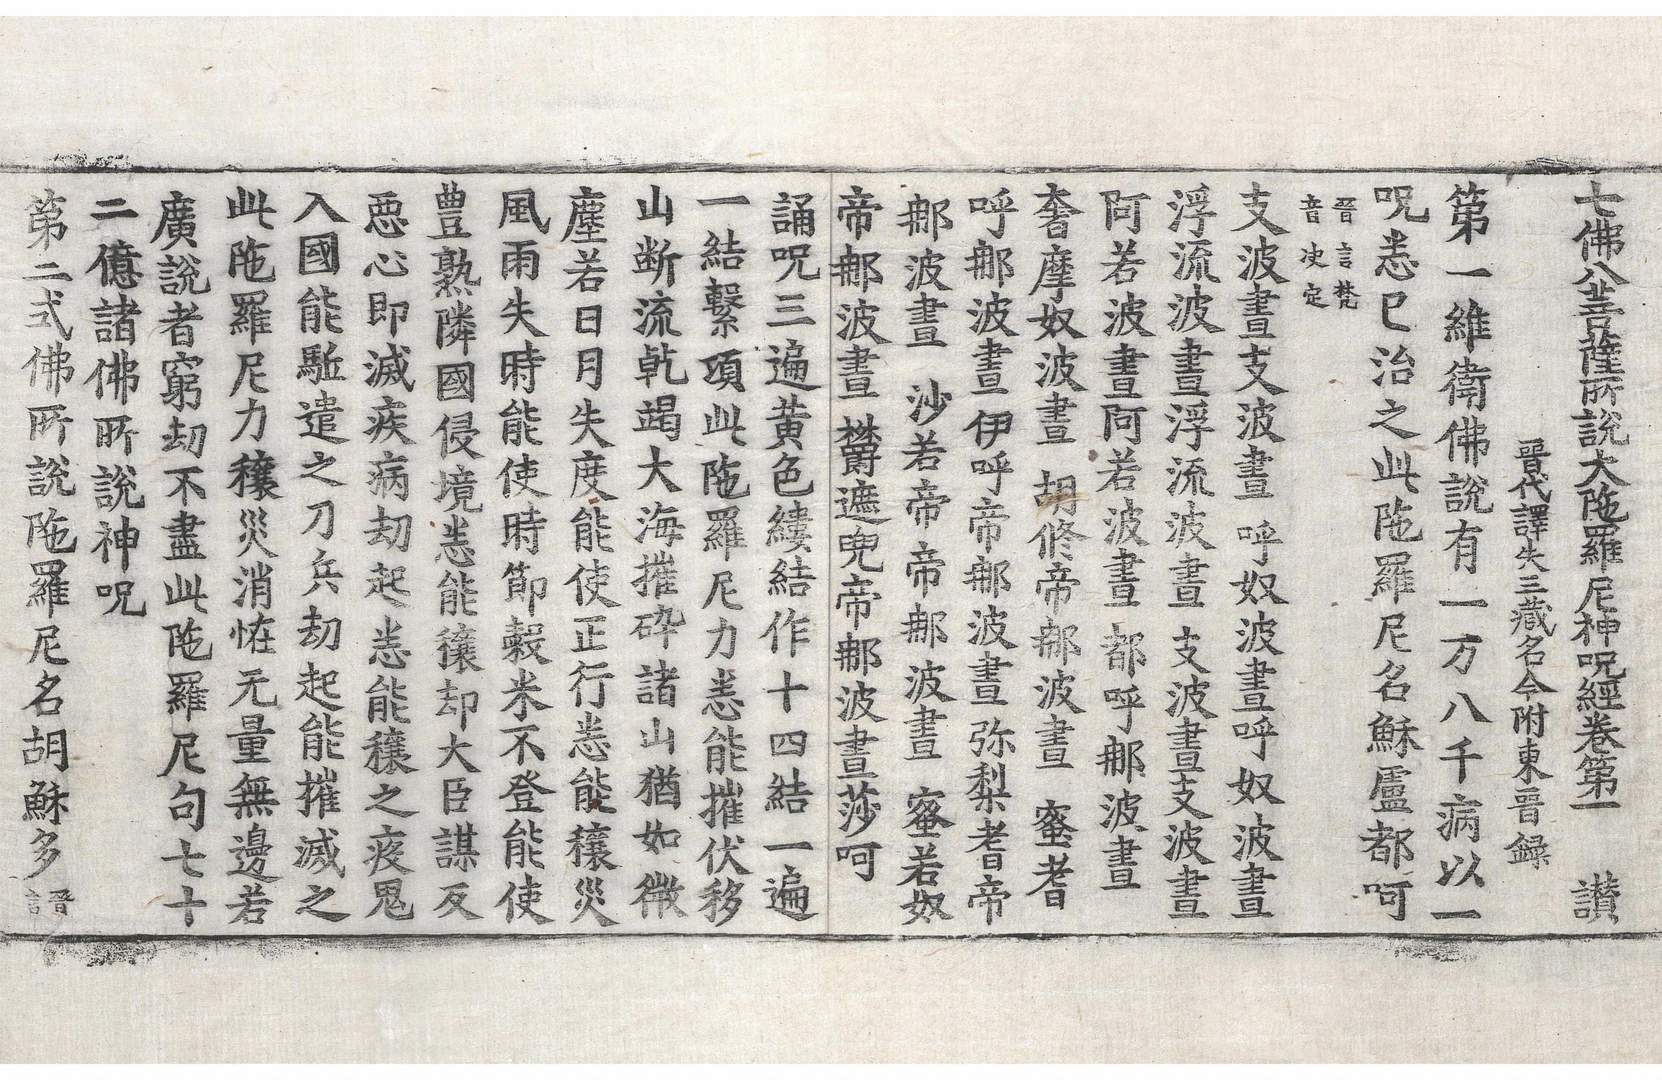 七佛八菩薩所說大陁羅尼神呪經卷第一　讃
晉代譯失三藏名今附東晉録
第一維衛佛說有一万八千病以一
呪悉已治之此陁羅尼名穌盧都呵
晉言梵
音決定
支波晝支波晝　呼奴波晝呼奴波晝
浮流波晝浮流波晝　支波晝支波晝
阿若波晝阿若波晝　都呼𨚗波晝
奢摩奴波晝　胡修帝𨚗波晝　蜜耆
呼𨚗波晝伊呼帝𨚗波晝弥梨耆帝
𨚗波晝　沙若帝帝𨚗波晝　蜜若奴
帝𨚗波晝欝遮兜帝𨚗波晝莎呵
誦呪三遍黄色縷結作十四結一遍
一結繫項此陁羅尼力悉能摧伏移
山断流乹竭大海摧碎諸山猶如微
塵若日月失度能使正行悉能穰災
風雨失時能使時節糓米不登能使
豊熟隣國侵境悉能穰却大臣謀反
𢙣心即滅疾病劫起悉能穰之疫鬼
入國能駈遣之刀兵劫起能摧滅之
此陁羅尼力穰災消恠无量無邊若
廣說者窮劫不盡此陁羅尼句七十
二億諸佛所說神呪
第二式佛所說陁羅尼名胡穌多 晉言